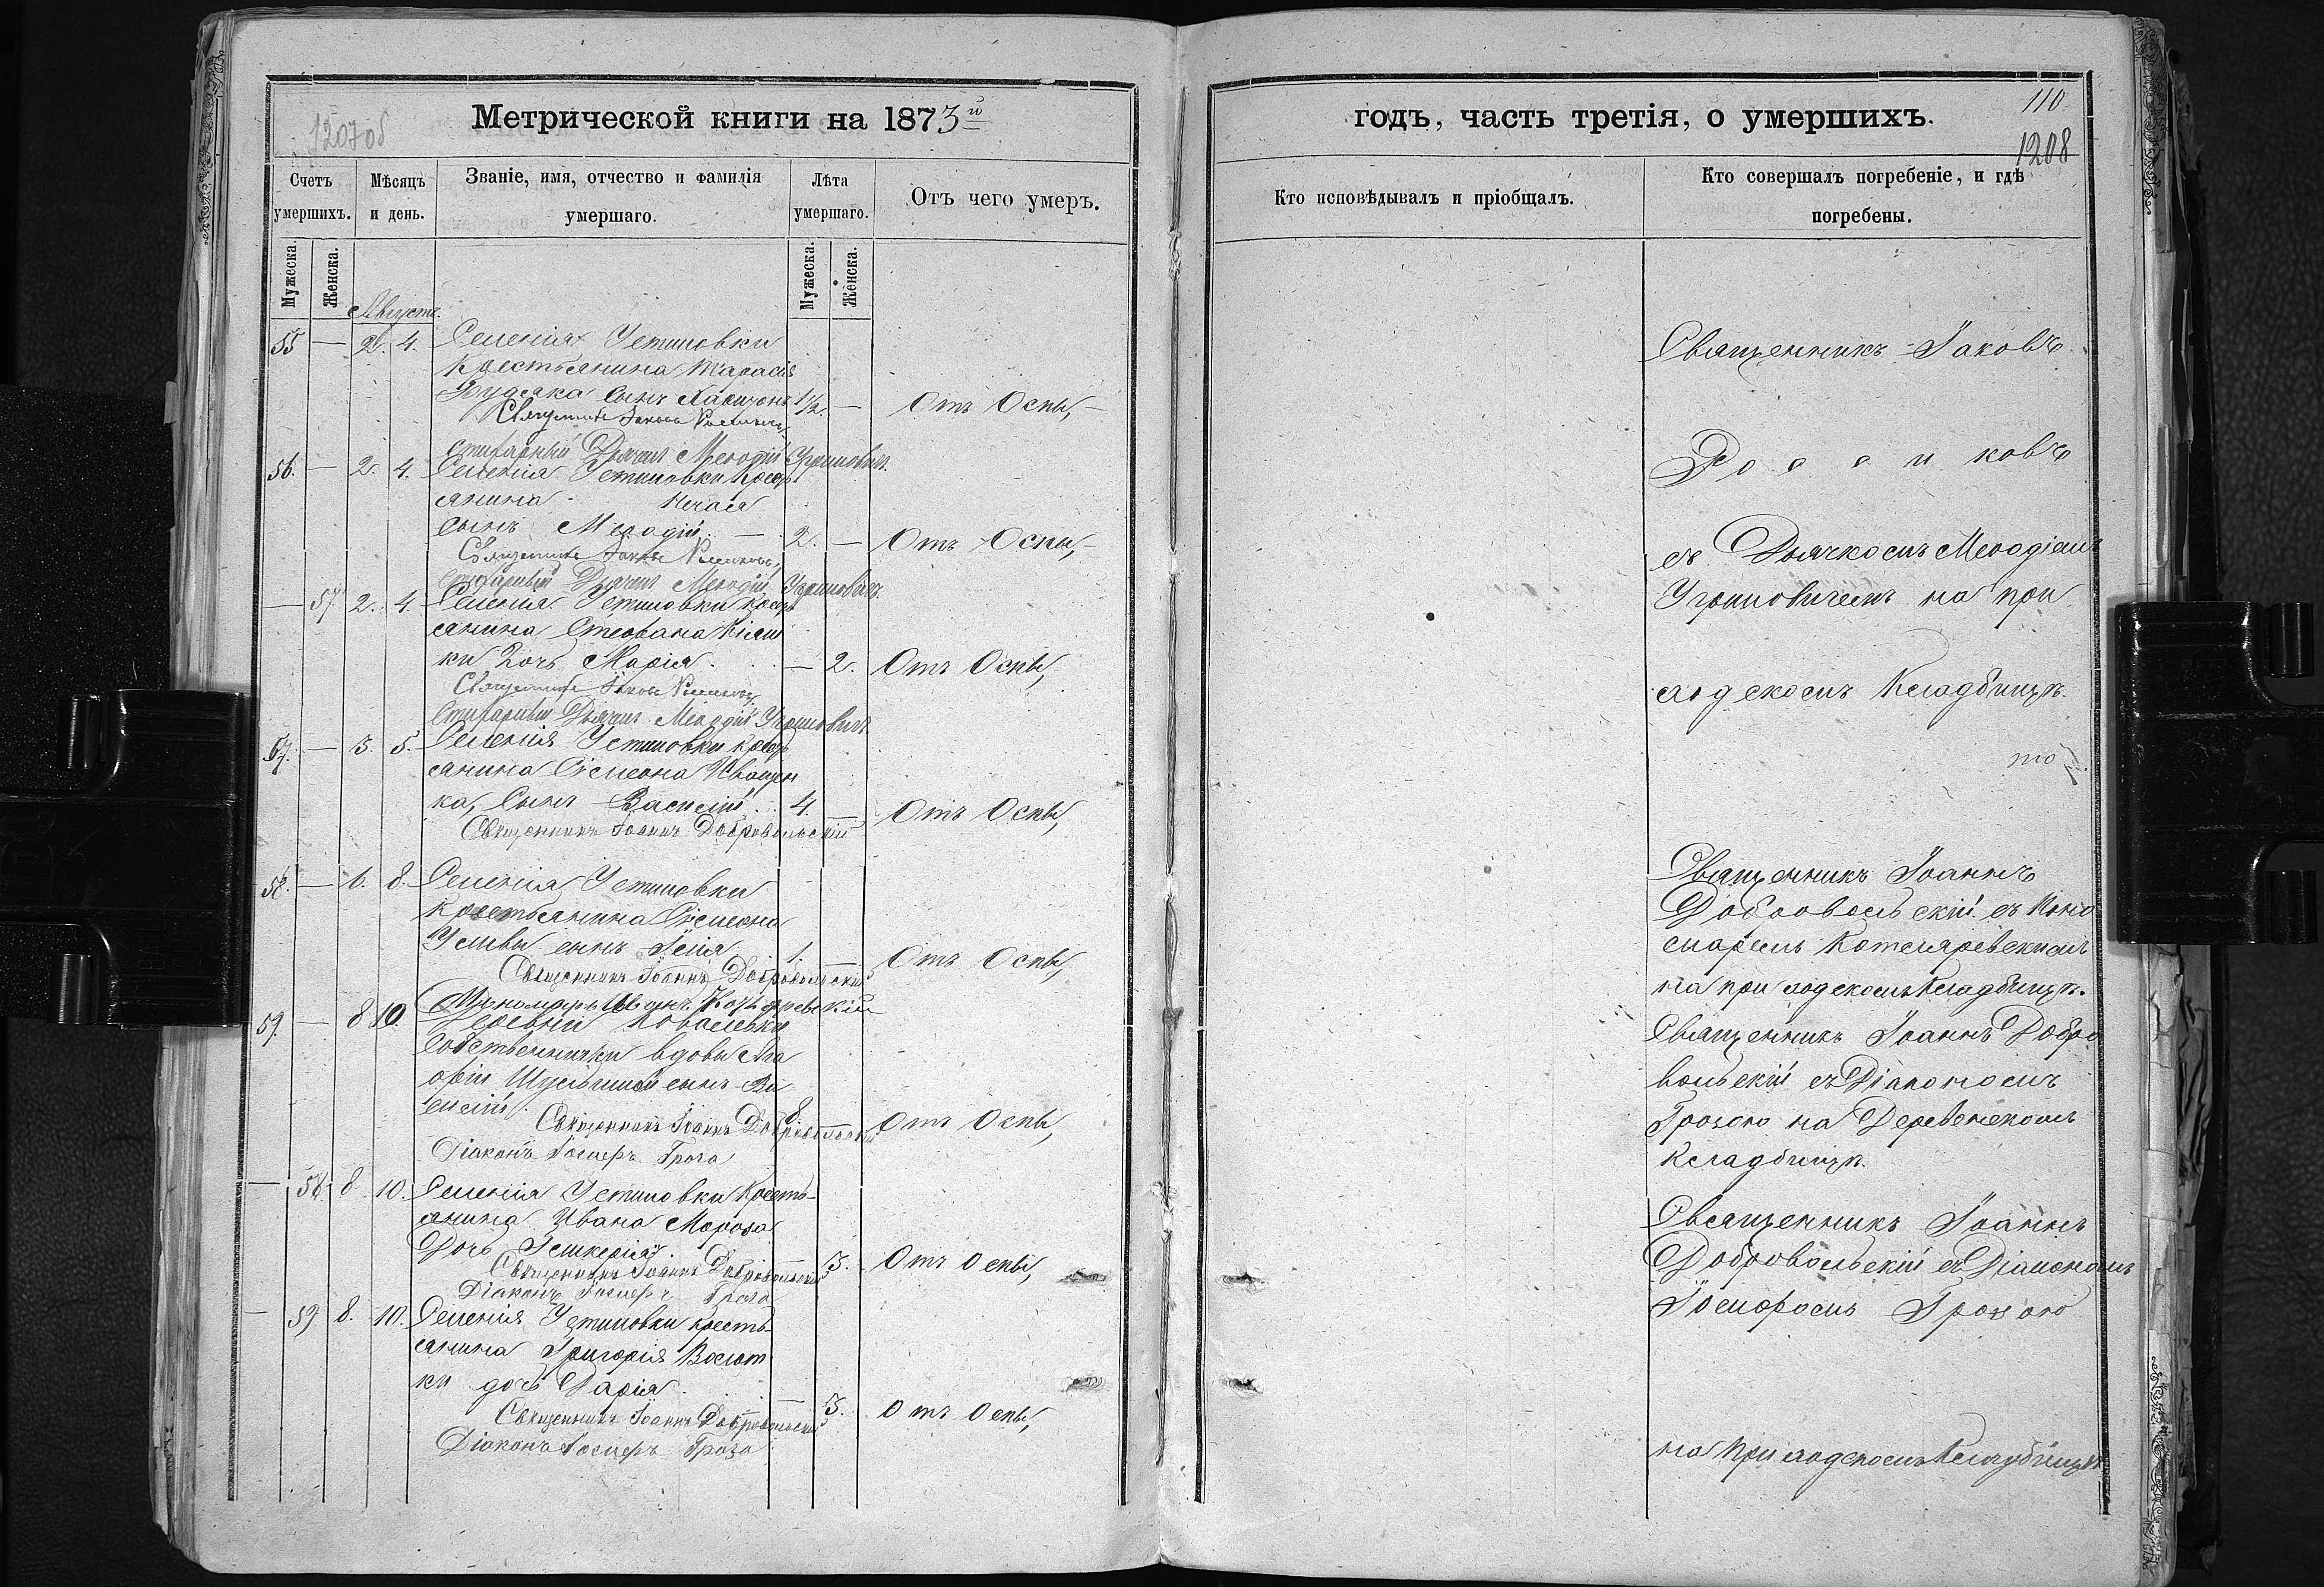 Метрической книги на 1873й
1207об
Счетъ умершихъ.
Мѣсяцъ и день.
Званіе, имя, отчество и фамилія умершаго.
Лѣта умершаго.
Отъ чего умеръ.
Мужеска.
Женска.
Мужеска.
Женска.
Августъ.
55 — 2. 4. Селенія Устиновки
Крестьянина Тарасія
сынъ 1½. — Отъ Оспы,
Священникъ Іаковъ
стихарный Дьячекъ Меѳодій Угриновичъ.
56. — 2. 4. Селенія Устиновки Крестъ
янина
сынъ Меѳодій. — 2. — Отъ Оспы,
Священникъ Іаковъ
стихарный Дьячекъ Меѳодій Угриновичъ
— 57 2. 4. Селенія Устиновки Крестъ
янина Стефана
ки Дочь Марія. — 2. Отъ Оспы,
Священникъ Іаковъ
Стихарный Дьячекъ Меѳодій Угриновичъ
57. — 3. 5. Селенія Устиновки Кресть
янина Симеона Иващен
ка, Сынъ Василій. 4. — Отъ Оспы,
Священникъ Іоаннъ Добровольскій
58. — 6. 8. Селенія Устиновки
Крестьянина Симеона
сынъ 1. — Отъ Оспы,
Священникъ Іоаннъ Добровольскій
Пономарь Иванъ Котляревскій
59. — 8 10. Деревни Ковалевки
Собственнички вдовы Ма
ріи сынъ Ва
силій. 8 — Отъ Оспы,
Священникъ Іоаннъ Добровольскій
Діаконъ Іосифъ Гроза
— 58. 8. 10. Селенія Устиновки Кресть-
янина Ивана Мороза
Дочь — 3. Отъ Оспы,
Священникъ Іоаннъ Добровольскій
Діаконъ Іосифъ Гроза
— 59 8. 10. Селенія Устиновки кресть-
янина Григорія
ки дочь Дарія. — 3. Отъ Оспы,
Священникъ Іоаннъ Добровольскій
Діаконъ Іосифъ Гроза
годъ, часть третія, о умершихъ.
110
1208
Кто исповѣдывалъ и пріобщалъ.
Кто совершалъ погребеніе, и гдѣ погребены.
Священникъ Іаковъ
Росиковъ
съ Дьячкомъ Меѳодіемъ
Угриновичемъ на при
ходскомъ Кладбищѣ.
Священникъ Іоаннъ
Добровольскій съ Поно
маремъ Котляревскимъ
на приходскомъ Кладбищѣ.
Священникъ Іоаннъ Добро
вольскій съ Діакономъ
Грозою на Деревенскомъ
Кладбищѣ.
Священникъ Іоаннъ
Добровольскій съ Діакономъ
Іосифомъ Грозою
на приходскомъ Кладбищѣ